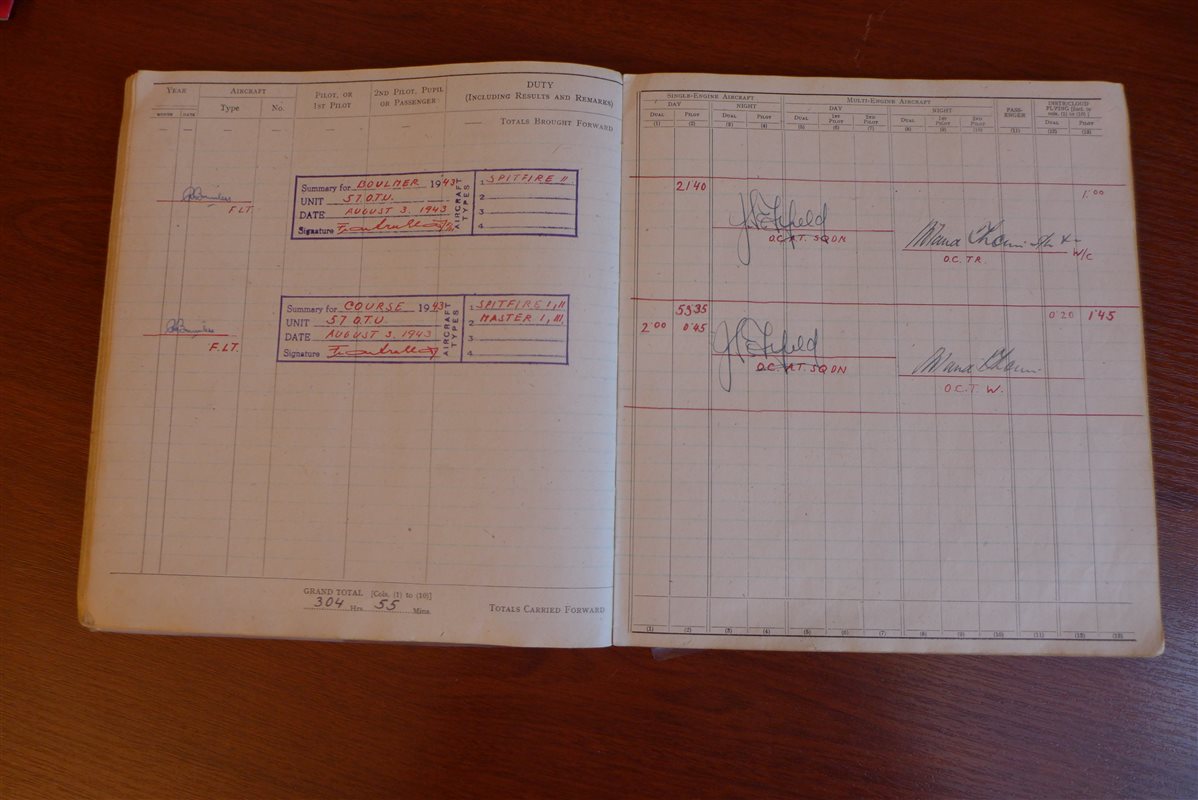 YEAR AIRCRAFT PILOT, OR 1ST PILOT 2ND PILOT, PUPIL OR PASSENGER DUTY (INCLUDING RESULTS AND REMARKS)
MONTH DATE Type No.
— — — — — — — TOTALS BROUGHT FORWARD
Summary for BOULMER 1943
UNIT 57 O.T.U.
DATE AUGUST 3. 1943
Signature
AIRCRAFT TYPES
1 SPITFIRE II
2
3
4
F.LT.
Summary for COURSE 1943
UNIT 57 O.T.U.
DATE AUGUST 3. 1943
Signature
AIRCRAFT TYPES
1 SPITFIRE I, II
2 MASTER I, III
3
4
F.LT.
GRAND TOTAL [Cols. (1) to (10)]
304 Hrs. 55 Mins.
TOTALS CARRIED FORWARD
SINGLE-ENGINE AIRCRAFT MULTI-ENGINE AIRCRAFT PASS-ENGER INSTR/CLOUD FLYING [Incl. in cols. (1) to (10)]
DAY NIGHT DAY NIGHT
DUAL PILOT DUAL PILOT DUAL 1ST PILOT 2ND PILOT DUAL 1ST PILOT 2ND PILOT DUAL PILOT
(1) (2) (3) (4) (5) (6) (7) (8) (9) (10) (11) (12) (13)
21.40 1.00
O.C. A.T. SQDN
W/C
O.C. T.R.
53.35 0.20 1.45
2.00 0.45
O.C. A.T. SQDN
O.C. T. W.
(1) (2) (3) (4) (5) (6) (7) (8) (9) (10) (11) (12) (13)